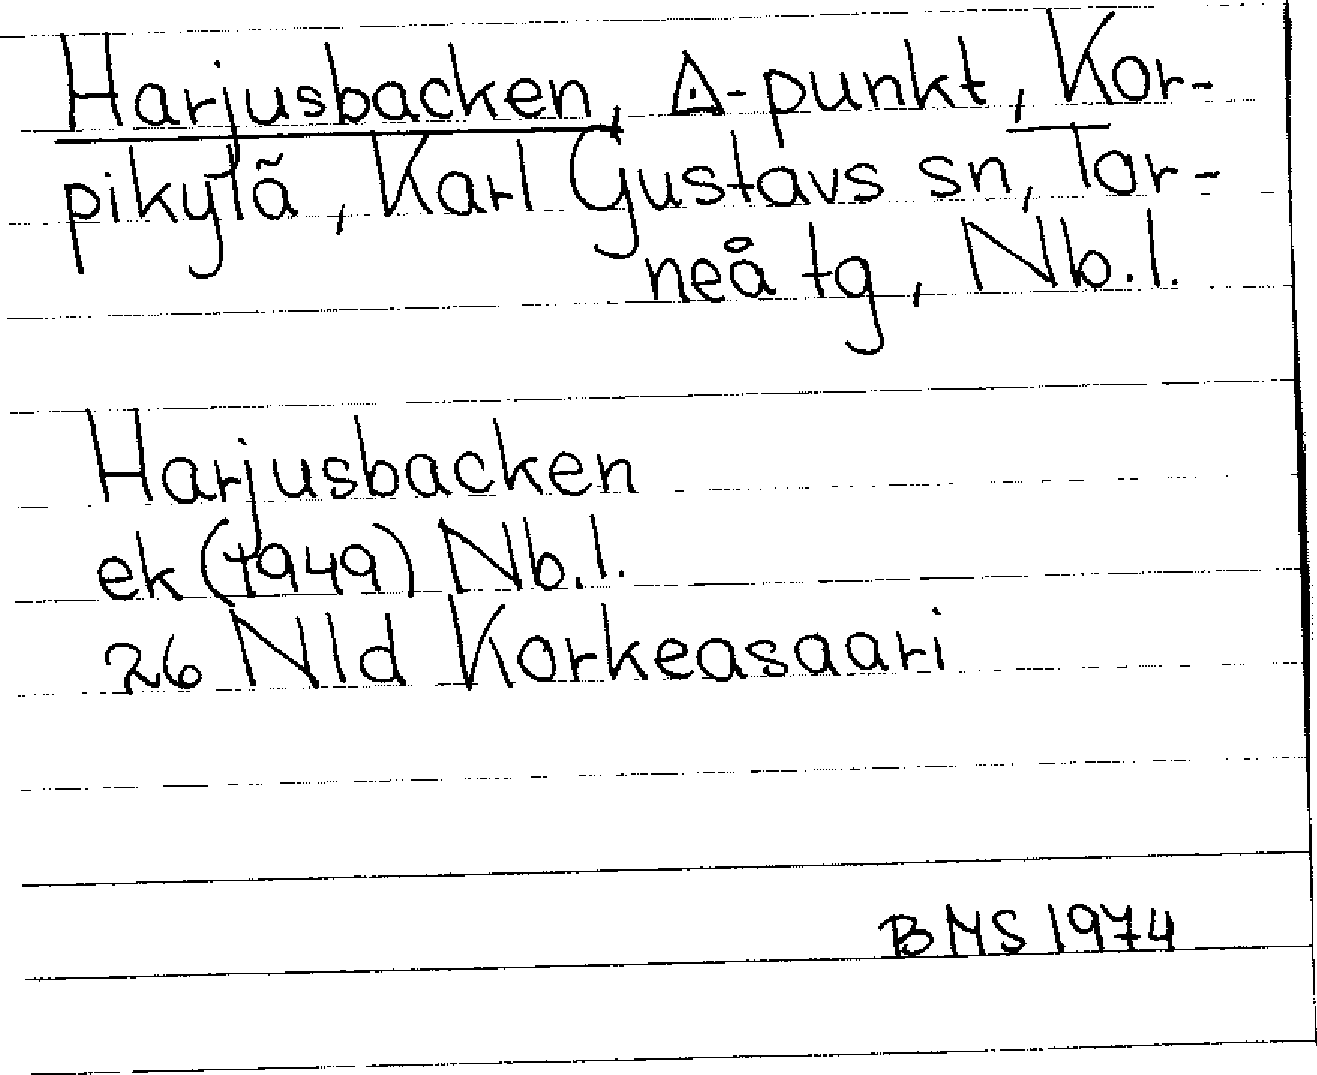 Harjusbacken, ◬-punkt, Kor-
pikylä, Karl Gustavs sn, Tor-
neå tg, Nb.l.
Harjusbacken
ek (1949) Nb.l.
26 Nld Korkeasaari
BMS 1974